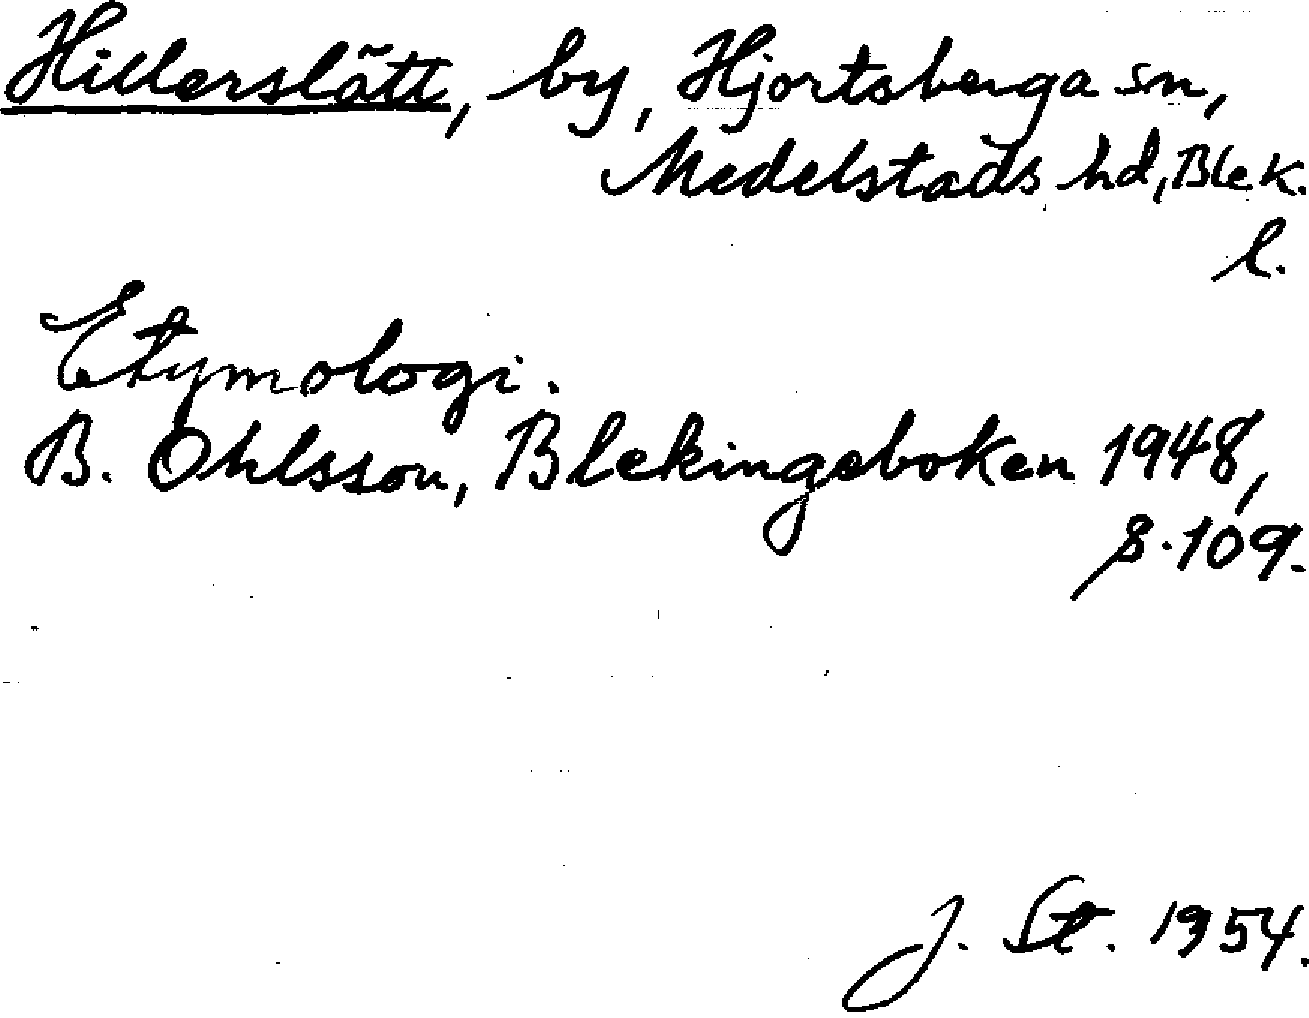 Hillerslätt, by, Hjortsberga sn,
Medelstads hd, Blek.
l.
Etymologi.
B. Ohlsson, Blekingeboken 1948,
s. 109.
J. St. 1954.